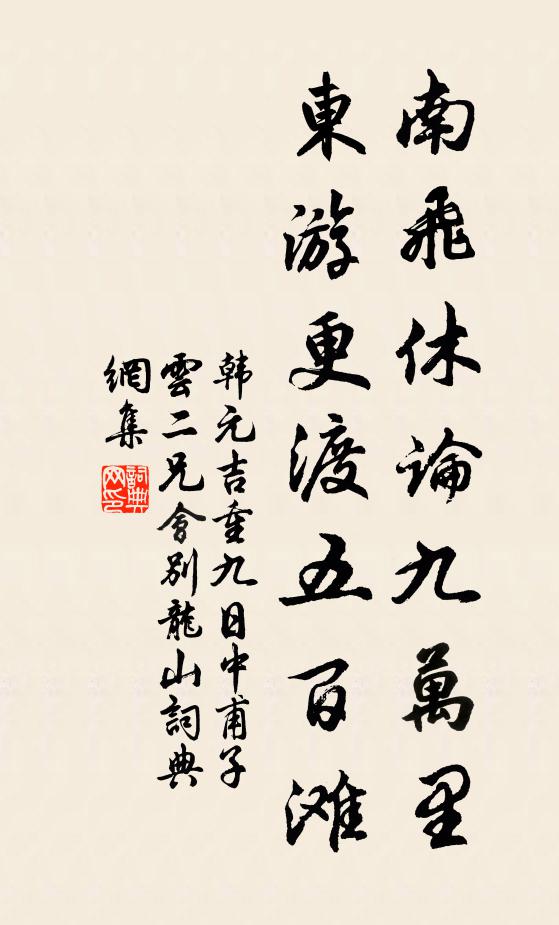 南飛休論九萬里
東游更渡五百滩
韩元吉重九日中甫子
雲二兄會别龍山詞典
網集
詞典
网印